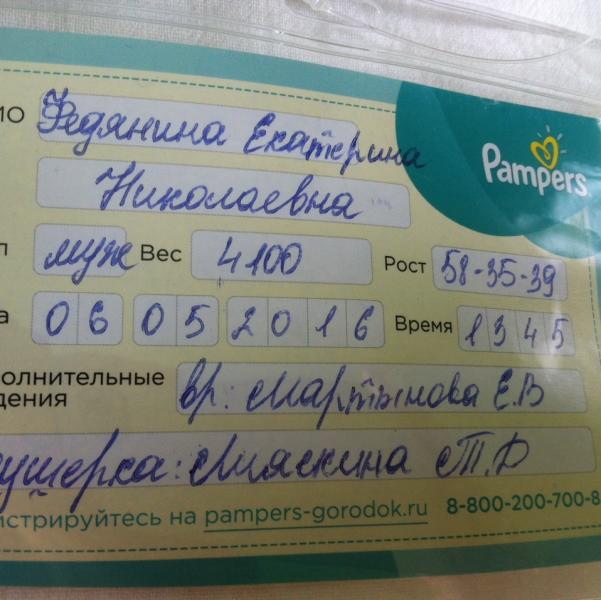 ИО Федянина Екатерина
Pampers
Николаевна
л муж Вес 4100 Рост 58-35-39
а 06 05 2016 Время 1345
олнительные
дения вр: Мартынова Е.В
ушерка: Мляскина Т.Д
истрируйтесь на pampers-gorodok.ru 8-800-200-700-8